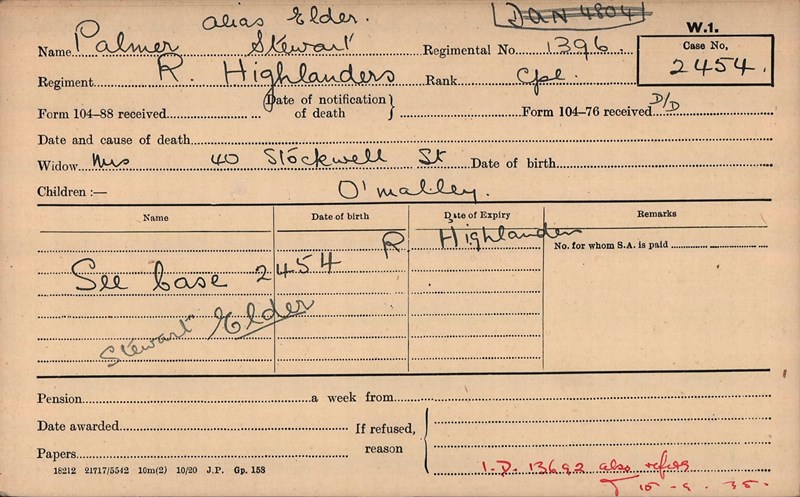 alias Elder.
DAN 4804
W.1.
Name Palmer Stewart Regimental No. 1396.
Case No, 2454.
Regiment R. Highlanders Rank Cpl.
Form 104–88 received Date of notification of death } Form 104–76 received D/D
Date and cause of death
Widow Mrs 40 Stockwell St Date of birth
Children :— O'Malley.
Name Date of birth Date of Expiry Remarks
R. Highlanders
No. for whom S.A. is paid
See case 2454
Stewart Elder
Pension a week from
Date awarded If refused, reason
Papers
1.D. 13692 also refers
18212 21717/5542 10m(2) 10/20 J.P. Gp. 158